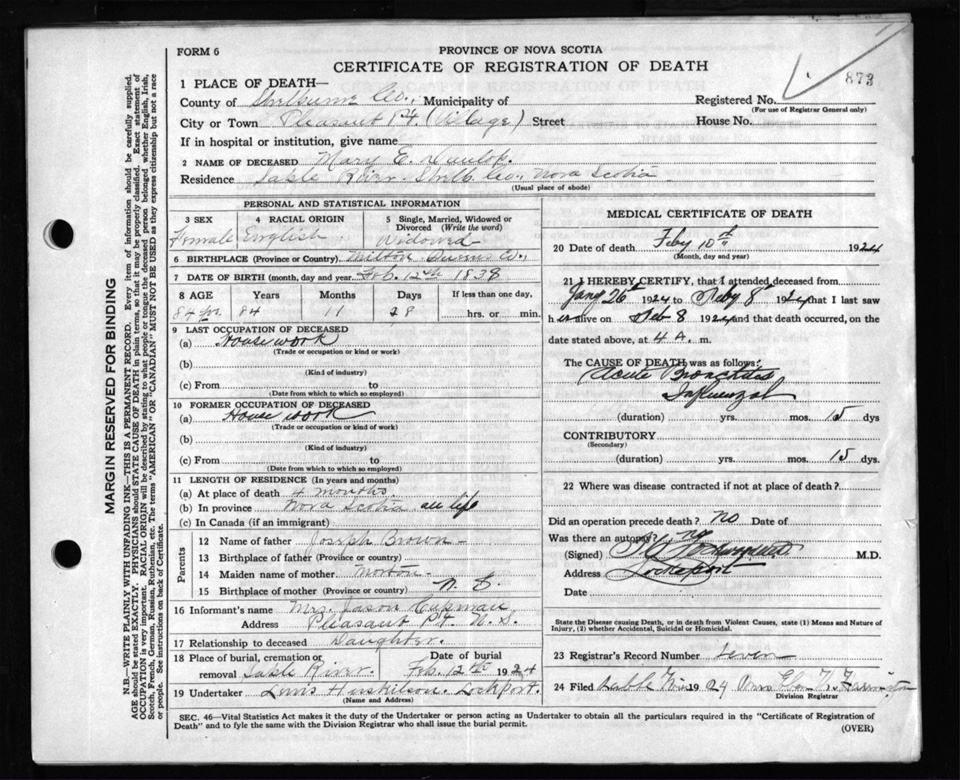 FORM 6
PROVINCE OF NOVA SCOTIA
CERTIFICATE OF REGISTRATION OF DEATH
873
1 PLACE OF DEATH—
County of Shelburne Co., Municipality of
Registered No.
(For use of Registrar General only)
City or Town Pleasant Pt. (Village) Street
House No.
If in hospital or institution, give name
2 NAME OF DECEASED Mary E.
Residence Sable River Shelb. Co., Nova Scotia
(Usual place of abode)
PERSONAL AND STATISTICAL INFORMATION
3 SEX
Female
4 RACIAL ORIGIN
English
5 Single, Married, Widowed or Divorced (Write the word)
Widowed
6 BIRTHPLACE (Province or Country) Milton Queens Co.,
7 DATE OF BIRTH (month, day and year) Feb. 12th 1838
8 AGE Years Months Days If less than one day,
84 yrs. 84 11 28 hrs. or min.
9 LAST OCCUPATION OF DECEASED
(a) House work
(Trade or occupation or kind or work)
(b)
(Kind of industry)
(c) From to
(Date from which to which so employed)
10 FORMER OCCUPATION OF DECEASED
(a) House work
(Trade or occupation or kind of work)
(b)
(Kind of industry)
(c) From to
(Date from which to which so employed)
11 LENGTH OF RESIDENCE (In years and months)
(a) At place of death 4 months
(b) In province Nova Scotia all life
(c) In Canada (if an immigrant)
Parents
12 Name of father Joseph Brown
13 Birthplace of father (Province or country)
14 Maiden name of mother Morton
15 Birthplace of mother (Province or country) N. S
16 Informant's name Mrs. Jason
Address Pleasant Pt. N. S.
17 Relationship to deceased Daughter.
18 Place of burial, cremation or removal Sable River.
Date of burial Feb. 12th 1924
19 Undertaker Lockport.
(Name and Address)
MEDICAL CERTIFICATE OF DEATH
20 Date of death Feby 10th 1924
(Month, day and year)
21 I HEREBY CERTIFY, that I attended deceased from
Jany 26th 1924 to Feby 8th 1924 that I last saw
h er alive on Feb 8 1924 and that death occurred, on the
date stated above, at 4 A. m.
The CAUSE OF DEATH was as follows:
Acute Bronchitis
Influenzal
(duration) yrs. mos. 15 dys
CONTRIBUTORY
(Secondary)
(duration) yrs. mos. 15 dys.
22 Where was disease contracted if not at place of death?
Did an operation precede death? no Date of
Was there an autopsy? no
(Signed) M.D.
Address Lockeport
Date
State the Disease causing Death, or in death from Violent Causes, state (1) Means and Nature of Injury, (2) whether Accidental, Suicidal or Homicidal.
23 Registrar's Record Number Seven
24 Filed 1924
Division Registrar
SEC. 46—Vital Statistics Act makes it the duty of the Undertaker or person acting as Undertaker to obtain all the particulars required in the "Certificate of Registration of
Death" and to fyle the same with the Division Registrar who shall issue the burial permit.
(OVER)
MARGIN RESERVED FOR BINDING
N.B.—WRITE PLAINLY WITH UNFADING INK—THIS IS A PERMANENT RECORD. Every item of information should be carefully supplied.
AGE should be stated EXACTLY. PHYSICIANS should STATE CAUSE OF DEATH in plain terms, so that it may be properly classified. Exact statement of
OCCUPATION is very important. RACIAL ORIGIN will be described by stating to what people or tongue the deceased person belonged whether English, Irish,
Scotch, French, German, Russian, Ruthenian, etc. The terms "AMERICAN" OR "CANADIAN" MUST NOT BE USED as they express citizenship but not a race
or people. See instructions on back of Certificate.